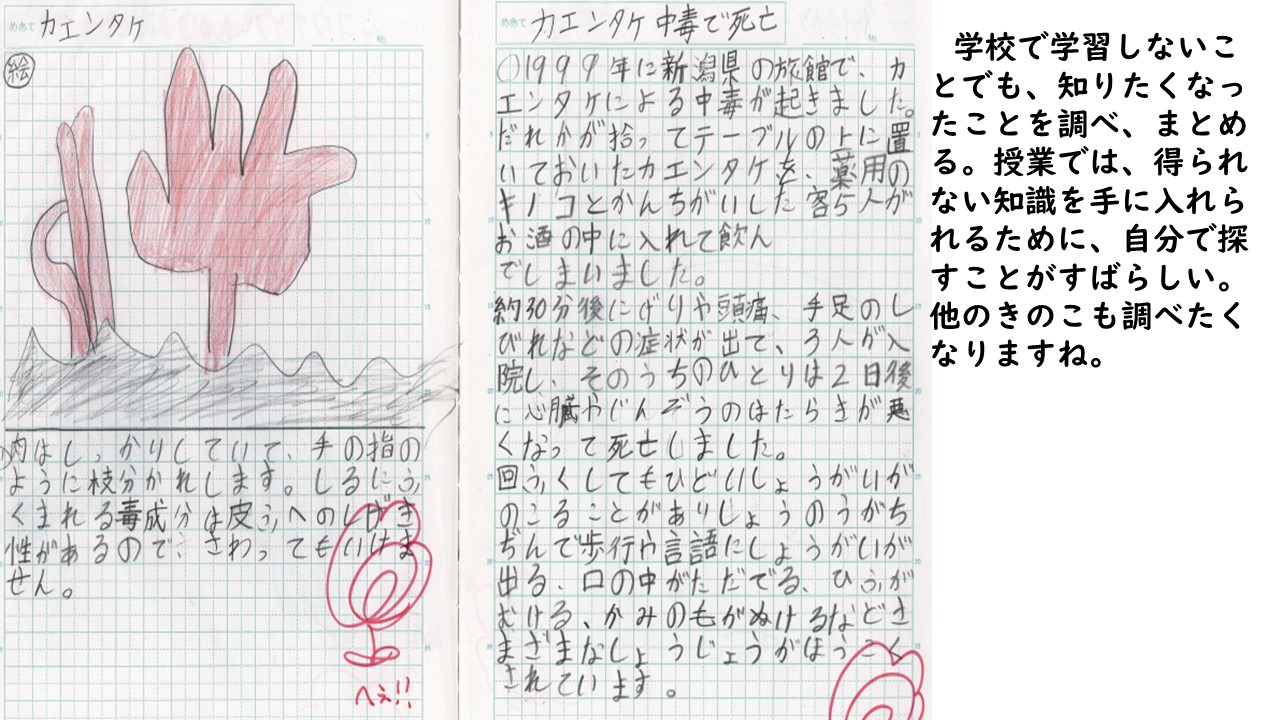 めあて カエンタケ
No.
絵
肉はしっかりしていて、手の指の
ように枝分かれします。しるにふ
くまれる毒成分は皮ふへのしげき
性があるので、さわってもいけま
せん。
へえ!!
めあて カエンタケ中毒で死亡
No.
○1999年に新潟県の旅館で、カ
エンタケによる中毒が起きました。
だれかが拾ってテーブルの上に置
いておいたカエンタケを、薬用の
キノコとかんちがいした客5人が
お酒の中に入れて飲ん
でしまいました。
約30分後にげりや頭痛、手足のし
びれなどの症状が出て、3人が入
院し、そのうちのひとりは2日後
に心臓やじんぞうのはたらきが悪
くなって死亡しました。
回ふくしてもひどいしょうがいが
のこることがありしょうのうがち
ぢんで歩行や言語にしょうがいが
出る、口の中がただでる、ひふが
むける、かみのもがぬけるなどさ
まざまなしょうじょうがほうこく
されています。
学校で学習しないこ
とでも、知りたくなっ
たことを調べ、まとめ
る。授業では、得られ
ない知識を手に入れら
れるために、自分で探
すことがすばらしい。
他のきのこも調べたく
なりますね。